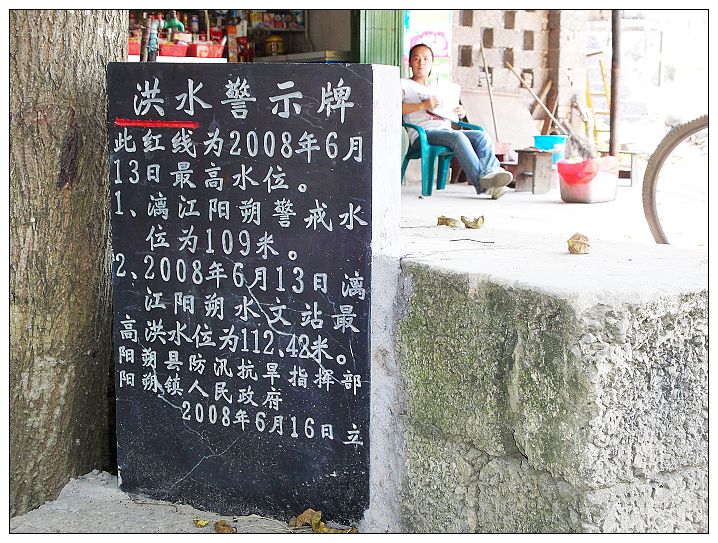 洪水警示牌
此红线为2008年6月
13日最高水位。
1、漓江阳朔警戒水
位为109米。
2、2008年6月13日漓
江阳朔水文站最
高洪水位为112.42米。
阳朔县防汛抗旱指挥部
阳朔镇人民政府
2008年6月16日立